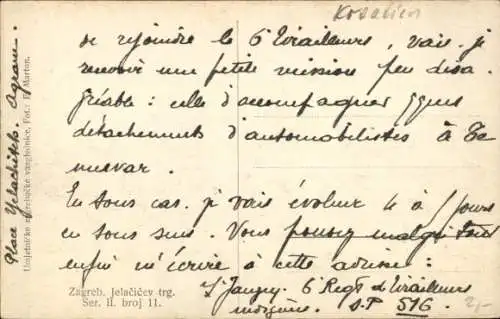 Kroatien
de rejoindre le 6 Tirailleurs, vais-je
recevoir une petite mission peu désa-
gréable : celle d'accompagner
détachements d'automobilistes à Te
mesvar.
En tous cas, je vais évoluer 4 à 5 jours
en tous sens. Vous pouvez malgré tout
enfin m'écrire à cette adresse :
6 Regt de Tirailleurs
indigène. S.P 516
Place Yelachitch. Agram.
Umjetničke razglednice, Fot.: F. Merten.
Zagreb. Jelačićev trg.
Ser. II. broj 11.